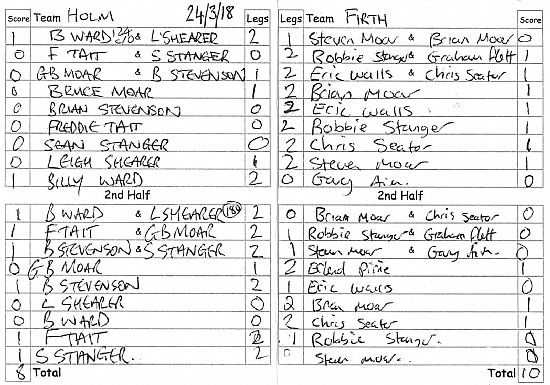 Score Team HOLM 24/3/18 Legs Legs Team FIRTH Score
1 B WARD & L SHEARER 2 1 Steven Moar & Brian Moar 0
0 F TAIT & S STANGER 0 2 Robbie Stanger & Graham Flett 1
0 GB MOAR & B STEVENSON 1 2 Eric Walls & Chris Seator 1
0 BRUCE MOAR 1 2 Brian Moar 1
0 BRIAN STEVENSON 0 2 Eric Walls 1
0 FREDDIE TAIT 0 2 Robbie Stanger 1
0 SEAN STANGER 0 2 Chris Seator 1
0 LEIGH SHEARER 1 2 Steven Moar 1
1 BILLY WARD 2 0 Gary Aim. 0
2nd Half 2nd Half
1 B WARD & L SHEARER 180 2 0 Brian Moar & Chris Seator 0
1 F TAIT & G B MOAR 2 1 Robbie Stanger & Graham Flett 0
1 B STEVENSON & S STANGER 2 1 Steven Moar & Gary Aim. 0
0 G B MOAR 1 2 1
1 B STEVENSON 2 1 Eric Walls 0
0 L SHEARER 0 2 Brian Moar 1
0 B WARD 0 2 Chris Seator 1
1 F TAIT 2 1 Robbie Stanger. 0
1 S STANGER. 2 0 Steven Moar.. 0
8 Total Total 10